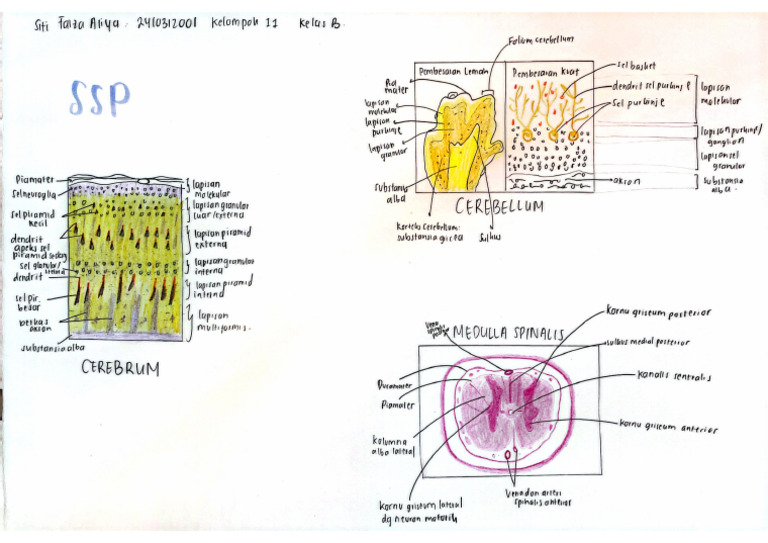 Siti Faiza Aliya. 2410312001 Kelompok 11 Kelas B.
SSP
Piamater
sel neuroglia
sel piramid
kecil
dendrit
apeks sel
piramid sedang
sel glanular/
dendrit
sel pir.
besar
berkas
akson
substansia alba
lapisan
molekular
lapisan granular
luar/externa
lapisan piramid
externa
lapisan granular
interna
lapisan piramid
internd
lapisan
multiformis.
CEREBRUM
Folium cerebellum
Pembesaran Lemah
Pembesaran Kuat
Pia
mater
lapisan
molekular
lapisan
purkinje
lapisan
granular
substansia
alba
korteks cerebellum:
substansia grisea
Sulkus
sel basket
dendrit sel purkinje
sel purkinje
akson
lapisan
molekular
lapisan purkinje/
ganglion
lapisan sel
granular
substansia
alba.
CEREBELLUM
MEDULLA SPINALIS
Duramater
Piamater
kolumna
alba lateral
kornu griseum lateral
dg neuron motorik
kornu griseum posterior
sulkus medial posterior
kanalis sentralis
kornu griseum anterior
Vena dan arteri
spinalis anterior